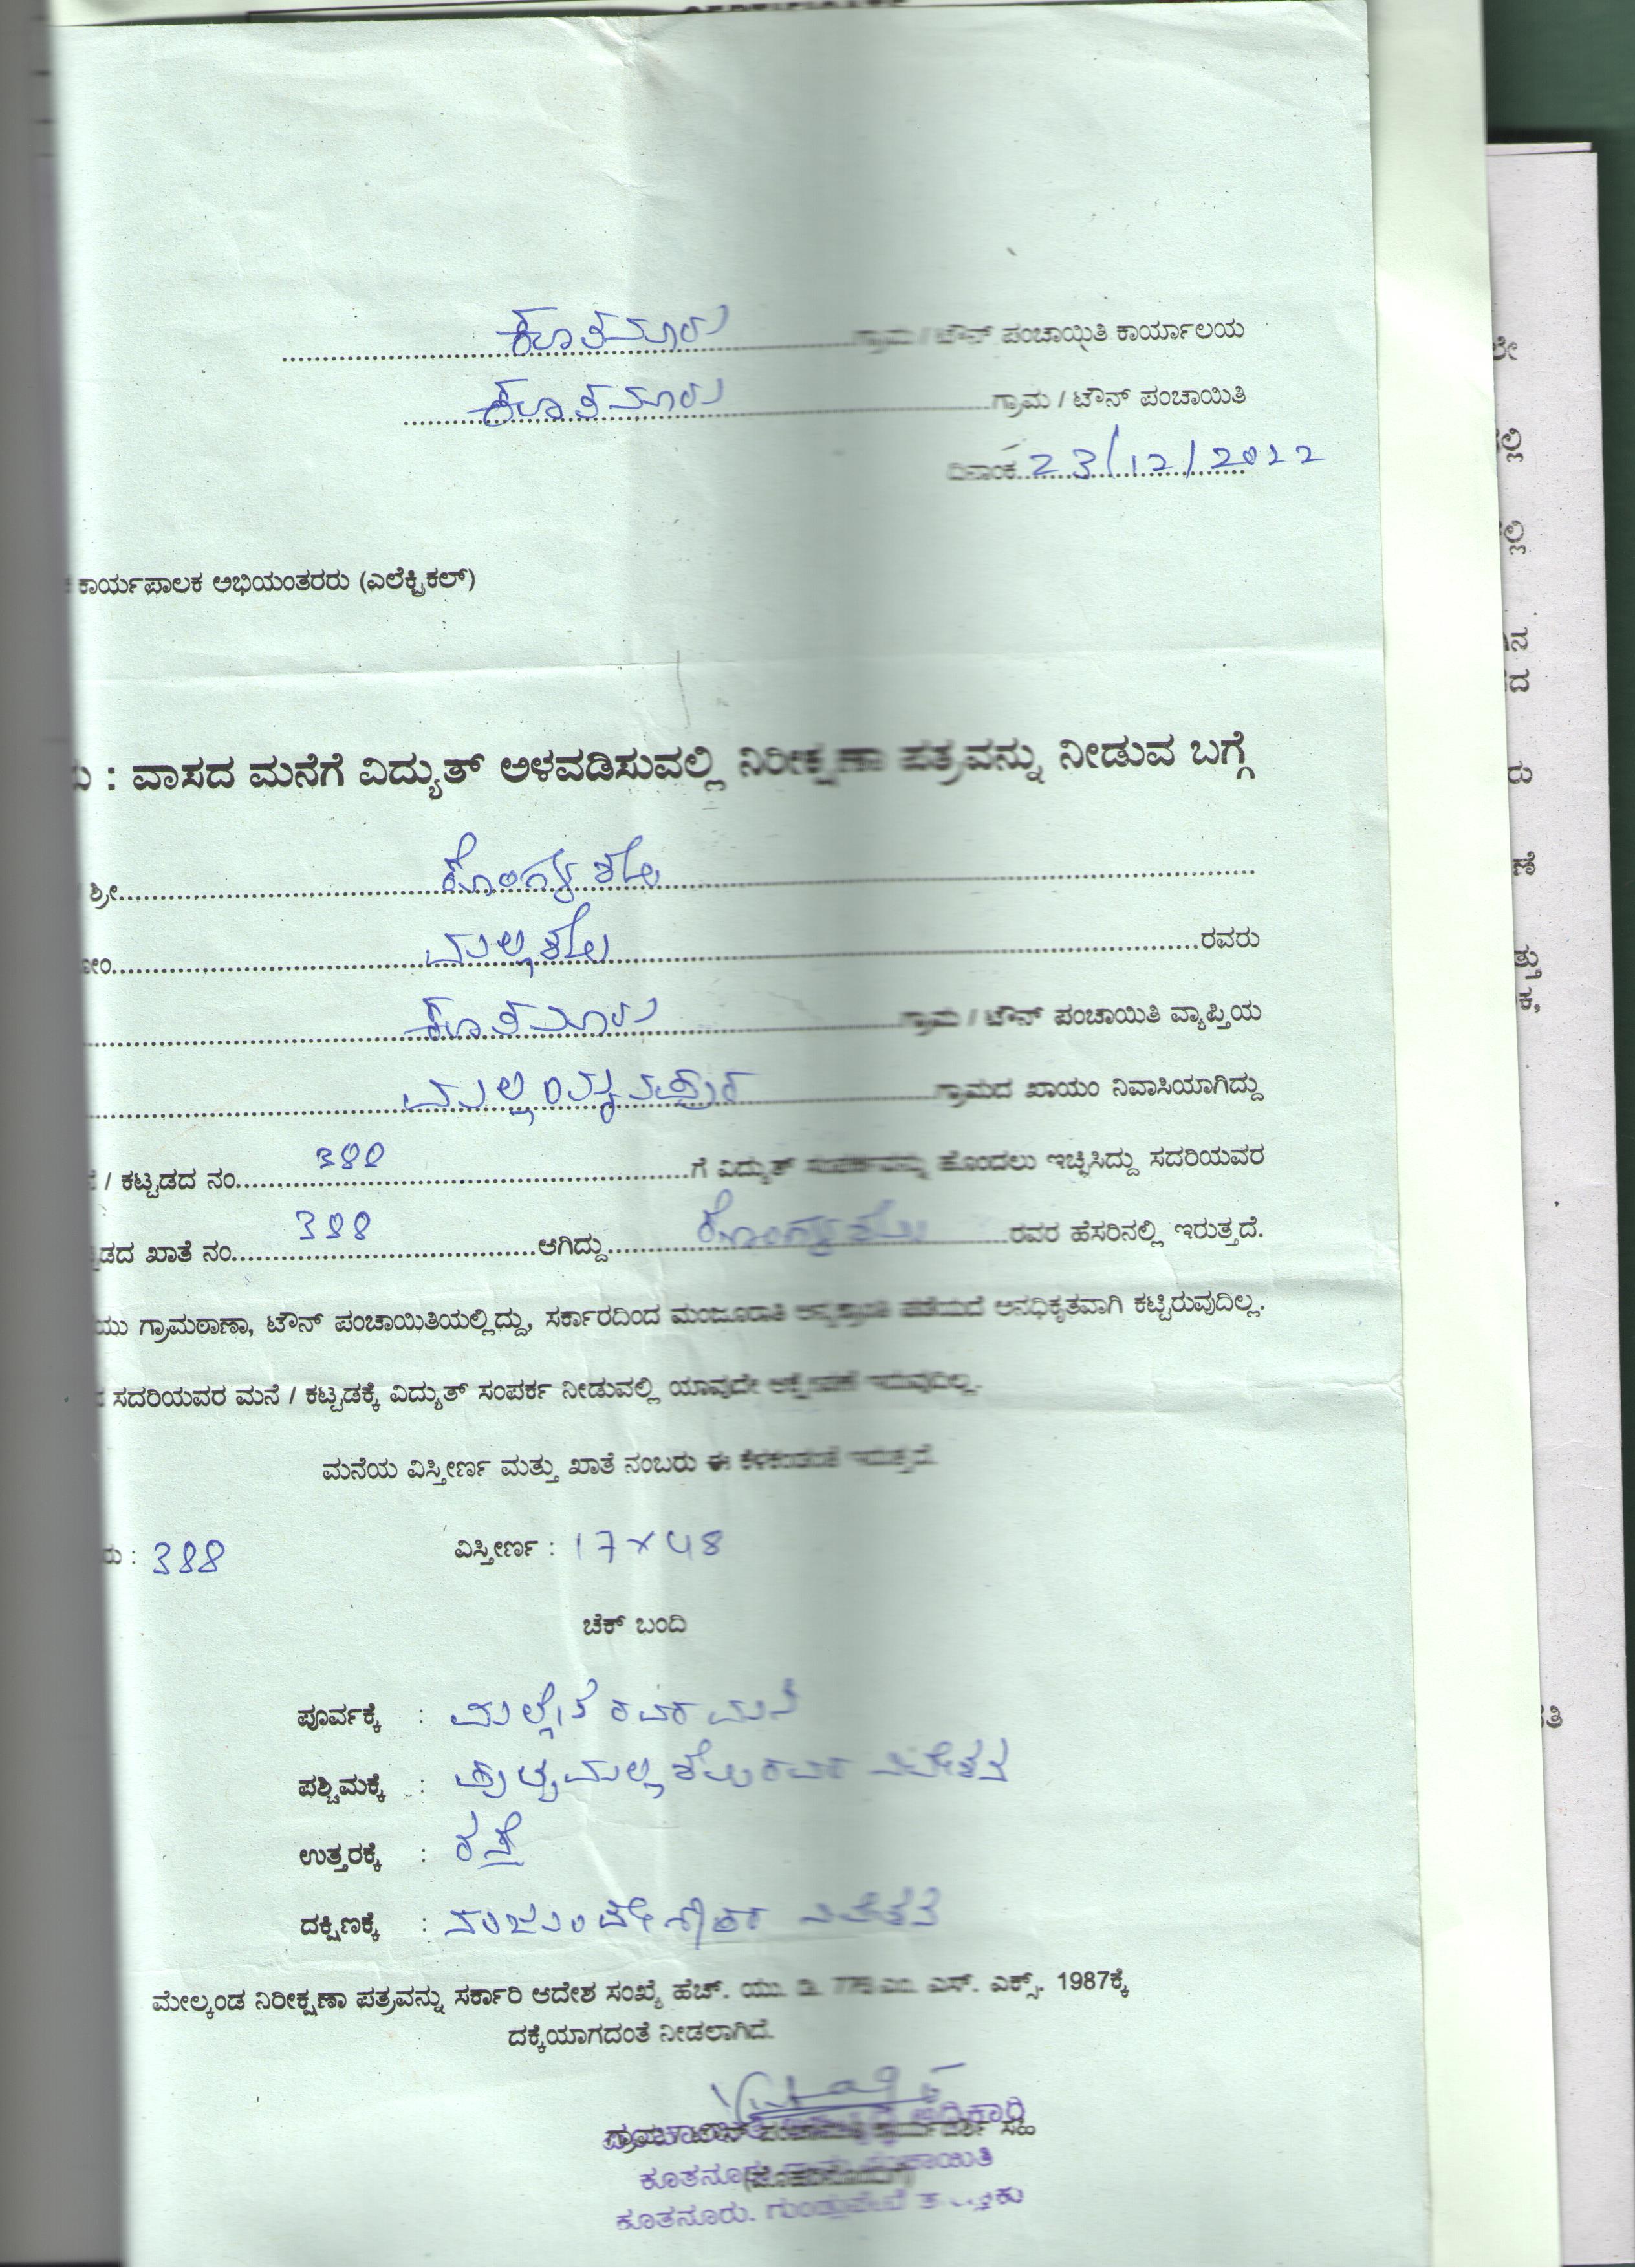 ಕೂತನೂರು ಗ್ರಾಮ / ಟೌನ್ ಪಂಚಾಯಿತಿ ಕಾರ್ಯಾಲಯ
ಕೂತನೂರು ಗ್ರಾಮ / ಟೌನ್ ಪಂಚಾಯಿತಿ
ದಿನಾಂಕ 23/12/2022
ಕಾರ್ಯಪಾಲಕ ಅಭಿಯಂತರರು (ಎಲೆಕ್ಟ್ರಿಕಲ್)
: ವಾಸದ ಮನೆಗೆ ವಿದ್ಯುತ್ ಅಳವಡಿಸುವಲ್ಲಿ ನಿರೀಕ್ಷಣಾ ಪತ್ರವನ್ನು ನೀಡುವ ಬಗ್ಗೆ
ಶ್ರೀ
ರವರು
ಕೂತನೂರು ಗ್ರಾಮ / ಟೌನ್ ಪಂಚಾಯಿತಿ ವ್ಯಾಪ್ತಿಯ
ಮಲ್ಲಯ್ಯನಪುರ ಗ್ರಾಮದ ಖಾಯಂ ನಿವಾಸಿಯಾಗಿದ್ದು
/ ಕಟ್ಟಡದ ನಂ. 388 ಗೆ ವಿದ್ಯುತ್ ಸಂಪರ್ಕವನ್ನು ಹೊಂದಲು ಇಚ್ಛಿಸಿದ್ದು ಸದರಿಯವರ
ಖಾತೆ ನಂ. 388 ಆಗಿದ್ದು ರವರ ಹೆಸರಿನಲ್ಲಿ ಇರುತ್ತದೆ.
ಗ್ರಾಮಠಾಣಾ, ಟೌನ್ ಪಂಚಾಯಿತಿಯಲ್ಲಿದ್ದು, ಸರ್ಕಾರದಿಂದ ಮಂಜೂರಾತಿ ಪಡೆಯದೆ ಅನಧಿಕೃತವಾಗಿ ಕಟ್ಟಿರುವುದಿಲ್ಲ.
ಸದರಿಯವರ ಮನೆ / ಕಟ್ಟಡಕ್ಕೆ ವಿದ್ಯುತ್ ಸಂಪರ್ಕ ನೀಡುವಲ್ಲಿ ಯಾವುದೇ ಆಕ್ಷೇಪಣೆ ಇರುವುದಿಲ್ಲ.
ಮನೆಯ ವಿಸ್ತೀರ್ಣ ಮತ್ತು ಖಾತೆ ನಂಬರು ಈ ಕೆಳಕಂಡಂತೆ ಇರುತ್ತದೆ.
: 388 ವಿಸ್ತೀರ್ಣ : 17×48
ಚೆಕ್ ಬಂದಿ
ಪೂರ್ವಕ್ಕೆ : ರವರ ಮನೆ
ಪಶ್ಚಿಮಕ್ಕೆ : ಪುಟ್ಟಮಲ್ಲಶೆಟ್ಟಿರವರ ನಿವೇಶನ
ಉತ್ತರಕ್ಕೆ : ರಸ್ತೆ
ದಕ್ಷಿಣಕ್ಕೆ : ನಿವೇಶನ
ಮೇಲ್ಕಂಡ ನಿರೀಕ್ಷಣಾ ಪತ್ರವನ್ನು ಸರ್ಕಾರಿ ಆದೇಶ ಸಂಖ್ಯೆ ಹೆಚ್. ಯು. ಡಿ. ಎಸ್. ಎಕ್ಸ್. 1987ಕ್ಕೆ
ದಕ್ಕೆಯಾಗದಂತೆ ನೀಡಲಾಗಿದೆ.
ಪಂಚಾಯಿತಿ
ಕೂತನೂರು. ಗುಂಡ್ಲುಪೇಟೆ